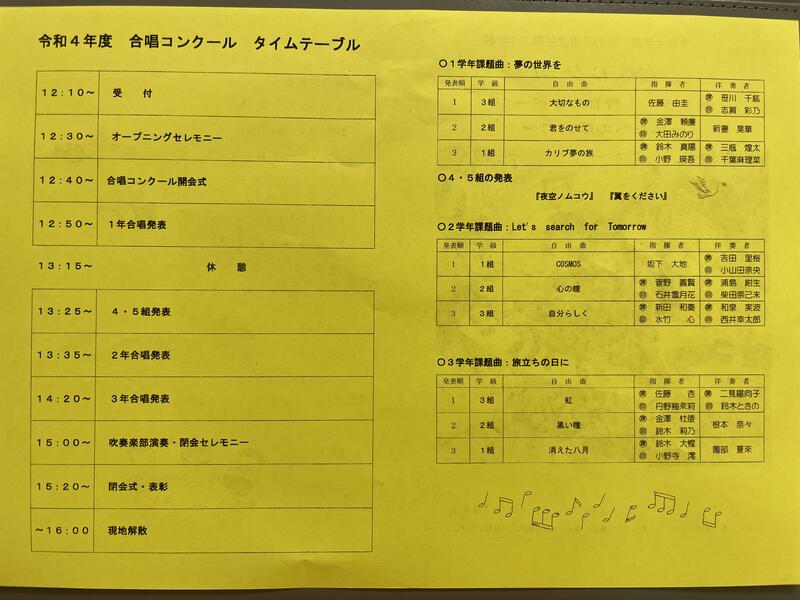 令和４年度　合唱コンクール　タイムテーブル
１２：１０～　受　付
１２：３０～　オープニングセレモニー
１２：４０～　合唱コンクール開会式
１２：５０～　１年合唱発表
１３：１５～　休　憩
１３：２５～　４・５組発表
１３：３５～　２年合唱発表
１４：２０～　３年合唱発表
１５：００～　吹奏楽部演奏・閉会セレモニー
１５：２０～　閉会式・表彰
～１６：００　現地解散
〇１学年課題曲：夢の世界を
発表順　学　級　自　由　曲　指　揮　者　伴　奏　者
1　3組　大切なもの　佐藤　由圭　㋵ 笹川　千紘
㋐ 志賀　彩乃
2　2組　君をのせて　金澤　頼廉　新妻　昊華
大田みのり
3　1組　カリブ夢の旅　鈴木　真陽　三瓶　煌太
小野　瑛吾　千葉麻理菜
〇４・５組の発表
『夜空ノムコウ』　『翼をください』
〇２学年課題曲：Let's search for Tomorrow
発表順　学　級　自　由　曲　指　揮　者　伴　奏　者
1　1組　COSMOS　坂下　大地　吉田　里桜
小山田奈央
2　2組　心の瞳　菅野　義賢　浦島　紺生
石井雪月花　柴田奈己未
3　3組　自分らしく　新田　和奏　和泉　実波
水竹　心　西井幸太郎
〇３学年課題曲：旅立ちの日に
発表順　学　級　自　由　曲　指　揮　者　伴　奏　者
1　3組　虹　佐藤　杏　二見陽向子
丹野釉茉莉　鈴木ときの
2　2組　黒い瞳　金澤　杜倭　根本　奈々
鈴木　莉乃
3　1組　消えた八月　鈴木　大幄　園部　夏来
小野寺　澪